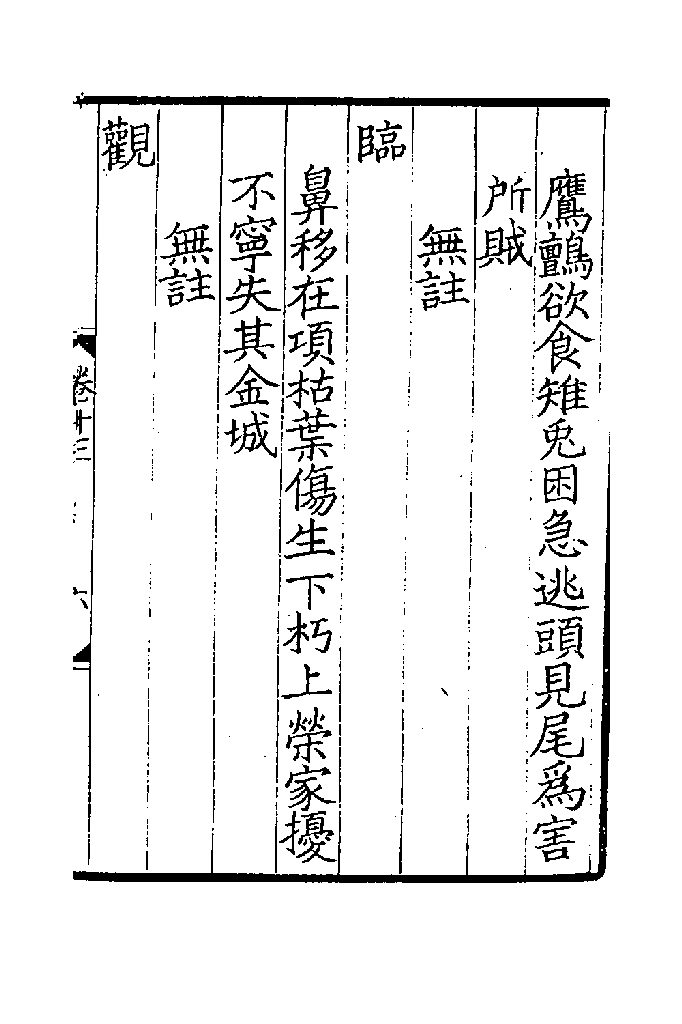 鷹鸇欲食雉兎困急逃頭見尾為害
所賊
無註
臨
鼻移在項枯葉傷生下朽上榮家擾
不寧失其金城
無註
觀
卷十三
六